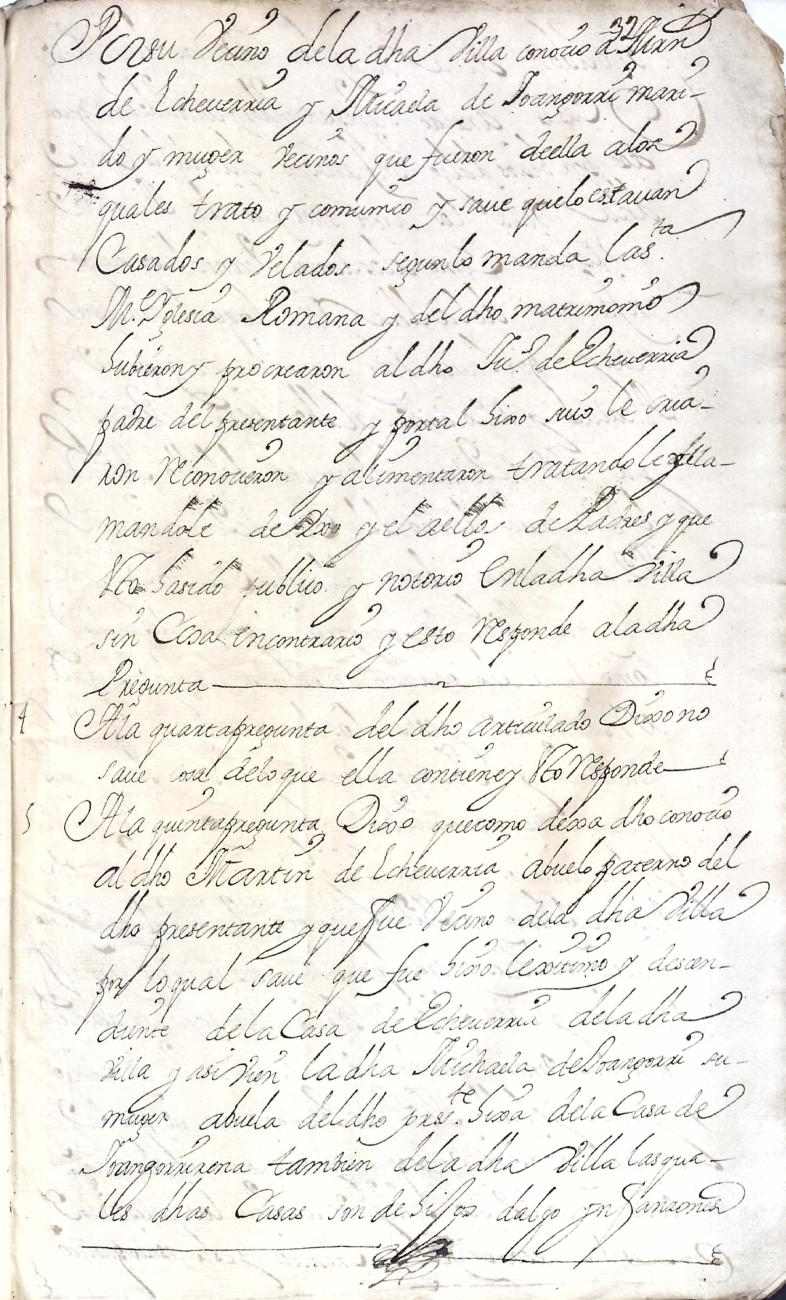 Por su Vecino dela dha Villa conocio a Mrn
32
de Echeverria y Micaela de Ibangorri mari-
do y muger vecinos que fueron deella alos
quales trato y comunico y save quelo estavan
Casados y Velados segunlo manda las.ta
M.e Yglesia Romana y del dho matrimonio
hubieron y procrearon al dho Ju.o de Echeverria
padre del presentante y portal hixo suio le cria-
ron reconocieron y alimentaron tratandole y lla-
mandole de Ixo y el aella de Padres y que
hasido publico y notorio Enladha Villa
sin Cosa encontrario y esto responde aladha
Pregunta
4
Ala quartapregunta del dho articulado Dixo no
save cosa deloque ella contiene y responde
5
Ala quintapregunta Dixo quecomo dexa dho conocio
al dho Martin de Echeverria abuelo paterno del
dho presentante y que fue Vecino dela dha Villa
por loqual save que fue hixo lexitimo y descen-
diente dela Casa de Echeverria dela dha
Villa y asi vien la dha Michaela de Ibangorri su-
muger abuela del dho pres.te hixa dela Casa de
Ibangorrirena tambien dela dha Villa lasqua-
les dhas Casas son de hijos dalgo ynfanzones